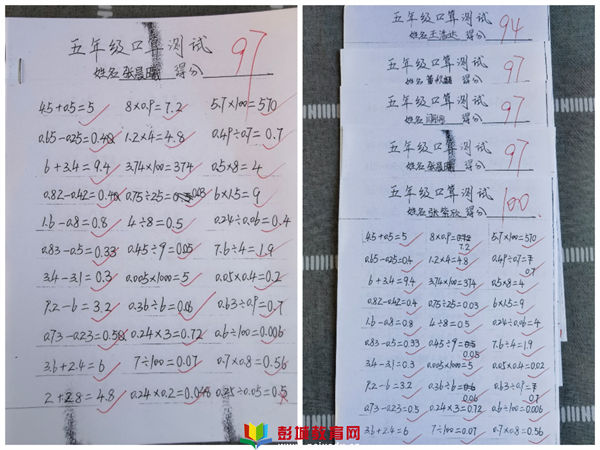 五年级口算测试
97
姓名 张晨曦 得分
4.5+0.5=5 8×0.9=7.2 5.7×100=570
0.65-0.25=0.4 1.2×4=4.8 0.49÷0.7=0.7
6+3.4=9.4 3.74×100=374 0.5×8=4
0.82-0.42=0.4 0.75÷25=0.03 6×1.5=9
1.6-0.8=0.8 4÷8=0.5 0.24÷0.06=0.4
0.83-0.5=0.33 0.45÷9=0.05 7.6÷4=1.9
3.4-3.1=0.3 0.005×1000=5 0.05×0.4=0.2
9.2-6=3.2 0.36÷6=0.06 0.63÷0.9=0.7
0.73-0.23=0.5 0.24×3=0.72 0.6÷100=0.006
3.6+2.4=6 7÷100=0.07 0.7×0.8=0.56
2+2.8=4.8 0.24×0.2=0.048 ÷0.05=0.5
五年级口算测试
94
姓名 得分
五年级口算测试
97
姓名 得分
五年级口算测试
97
姓名 得分
五年级口算测试
97
姓名 张晨曦 得分
五年级口算测试
100
姓名 张紫欣 得分
4.5+0.5=5 8×0.9=7.2 5.7×100=570
0.65-0.25=0.4 1.2×4=4.8 0.49÷0.7=0.7
6+3.4=9.4 3.74×100=374 0.5×8=4
0.82-0.42=0.4 0.75÷25=0.03 6×1.5=9
1.6-0.8=0.8 4÷8=0.5 0.24÷0.06=4
0.83-0.5=0.33 0.45÷9=0.05 7.6÷4=1.9
3.4-3.1=0.3 0.005×1000=5 0.05×0.4=0.02
9.2-6=3.2 0.36÷6=0.06 0.63÷0.9=0.7
0.73-0.23=0.5 0.24×3=0.72 0.6÷100=0.006
3.6+2.4=6 7÷100=0.07 0.7×0.8=0.56
彭城教育网